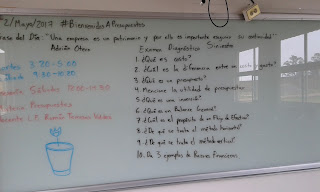 2/Mayo/2017 #BienvenidosAPresupuestos
Frase del Día: "Una empresa es un patrimonio y por ello es importante asegurar su continuidad"
Adrián Otero
Examen Diagnóstico Sinvestre
1. ¿Qué es costo?
2. ¿Cuál es la diferencia entre un costo y gasto?
3. ¿Qué es un presupuesto?
4. Mencione la utilidad de presupuestar
5. ¿Qué es una inversión?
6. ¿Qué es un Balance General?
7. ¿Cuál es el propósito de un Flujo de Efectivo?
8. ¿De qué se trata el método horizontal?
9. ¿De qué se trata el método vertical?
10. Da 3 ejemplos de Razones Financieras.
3:20-5:00
9:00-10:30
Sábados 12:00-14:30
Presupuestos
L.P. Ramón